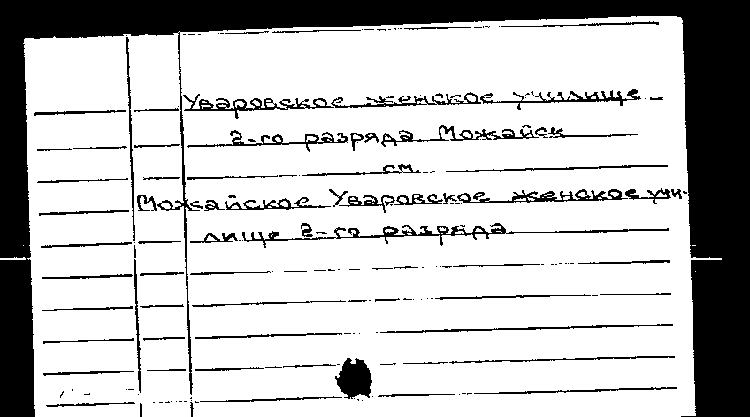 Уваровское женское училище
2-го разряда. Можайск
см.
Можайское Уваровское женское учи-
лище 2-го разряда.